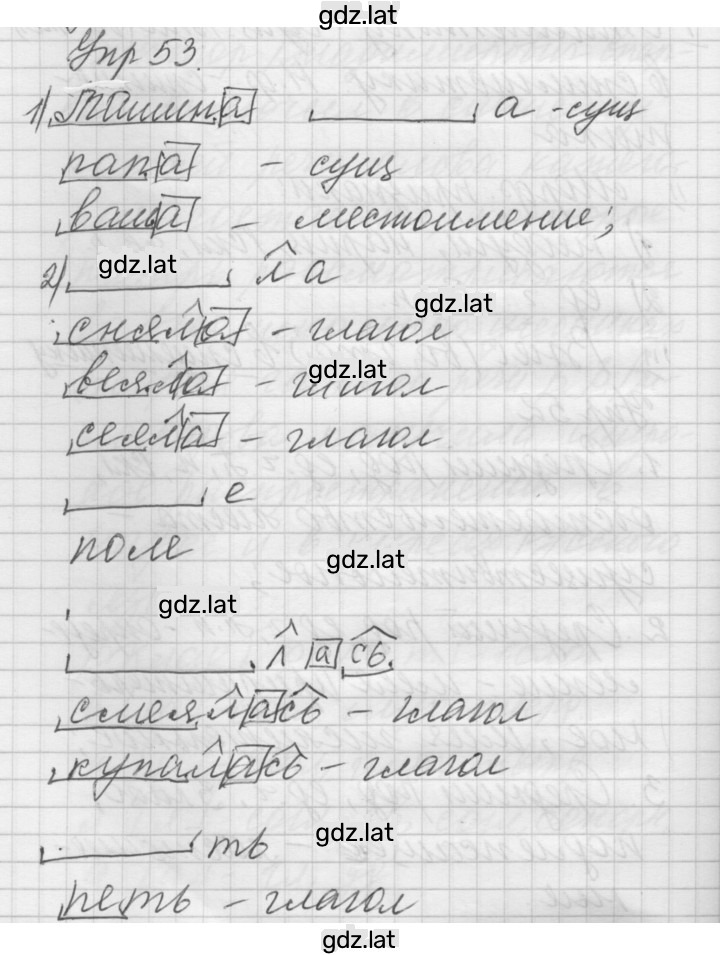 gdz.lat
Упр 53.
1) Машина а - сущ
папа - сущ
ваша - местоимение;
2) gdz.lat л а
gdz.lat
сняла - глагол
gdz.lat
веяла - глагол
сеяла - глагол
е
поле
gdz.lat
gdz.lat
л а сь.
смеялась - глагол
купалась - глагол
gdz.lat
ть
петь - глагол
gdz.lat